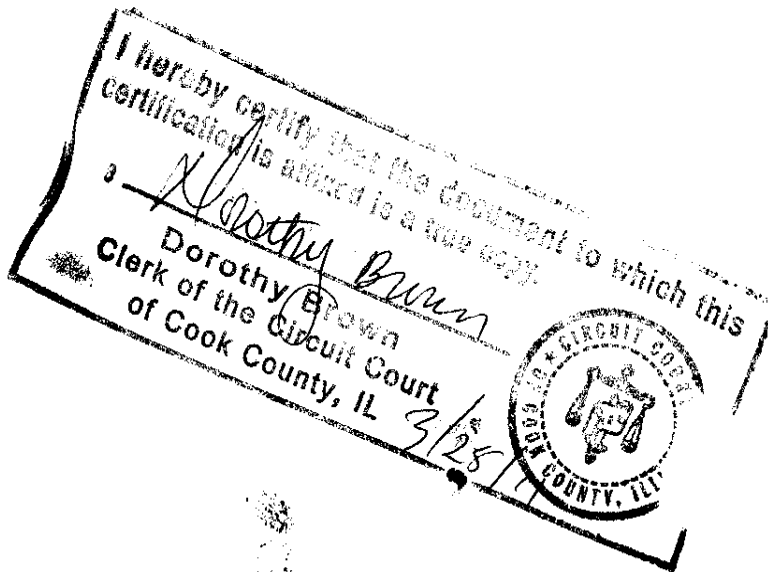 I hereby certify that the document to which this
certification is affixed is a true copy.
Dorothy Brown
Dorothy Brown
Clerk of the Circuit Court
of Cook County, IL
3/28/
CIRCUIT COURT OF COOK COUNTY, ILL